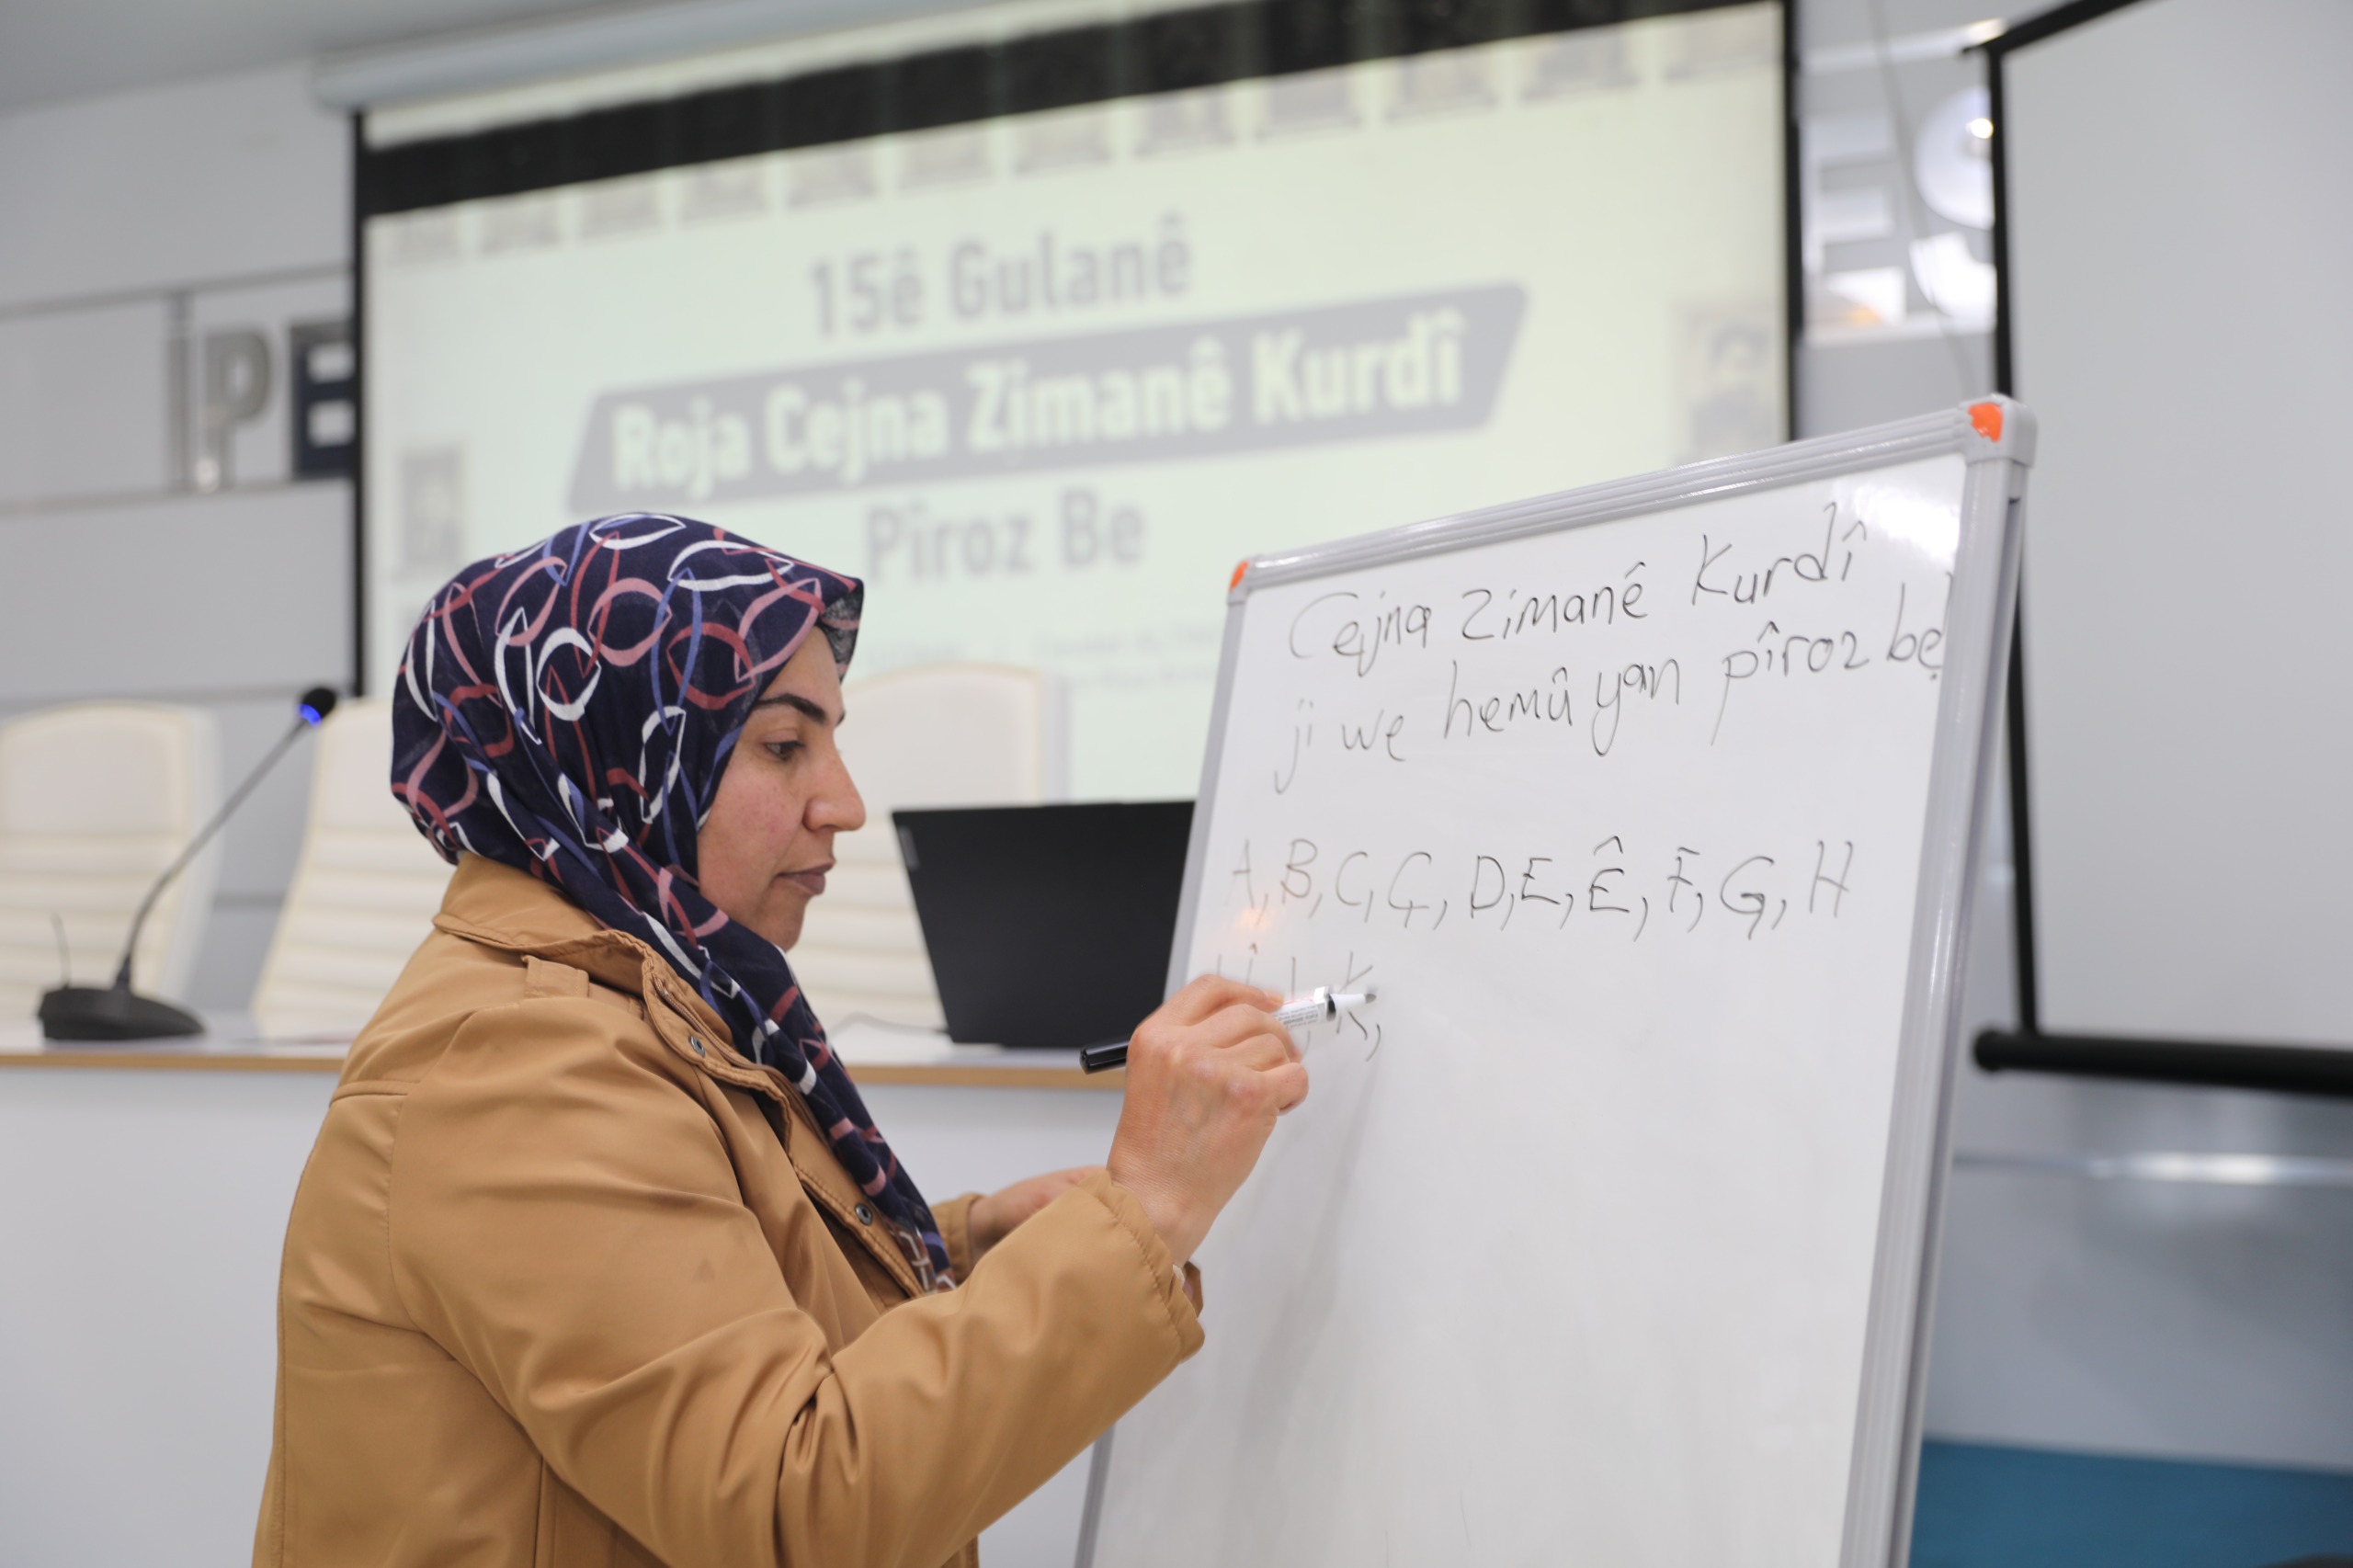 15ê Gulanê
Roja Cejna Zimanê Kurdî
Pîroz Be
Cejna Zimanê Kurdî
ji we hemû yan pîroz be
A, B, C, Ç, D, E, Ê, F, G, H
Î, K,